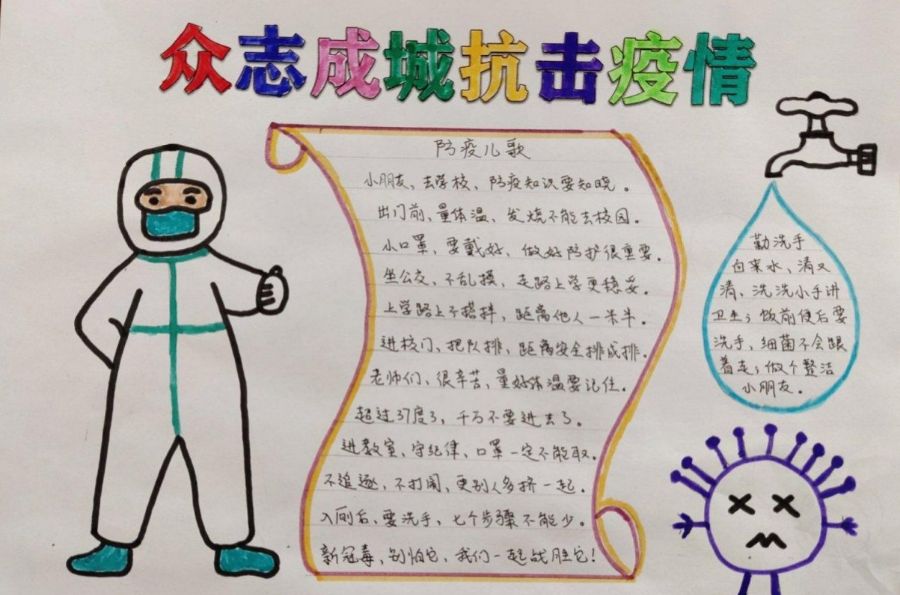 众志成城抗击疫情
防疫儿歌
小朋友、去学校、防疫知识要知晓。
出门前、量体温、发烧不能去校园。
小口罩、要戴好、做好防护很重要。
坐公交、不乱摸、走路上学更稳妥。
上学路上不搭拌、距离他人一米半。
进校门、把队排、距离安全排成排。
老师们、很辛苦、量好体温要记住。
超过37度3、千万不要进去了。
进教室、守纪律、口罩一定不能取。
不追逐、不打闹、更别人多挤一起。
入厕后、要洗手、七个步骤不能少。
新冠毒、别怕它、我们一起战胜它!
勤洗手
自来水、清又
清、洗洗小手讲
卫生;饭前便后要
洗手、细菌不会跟
着走;做个整洁
小朋友。